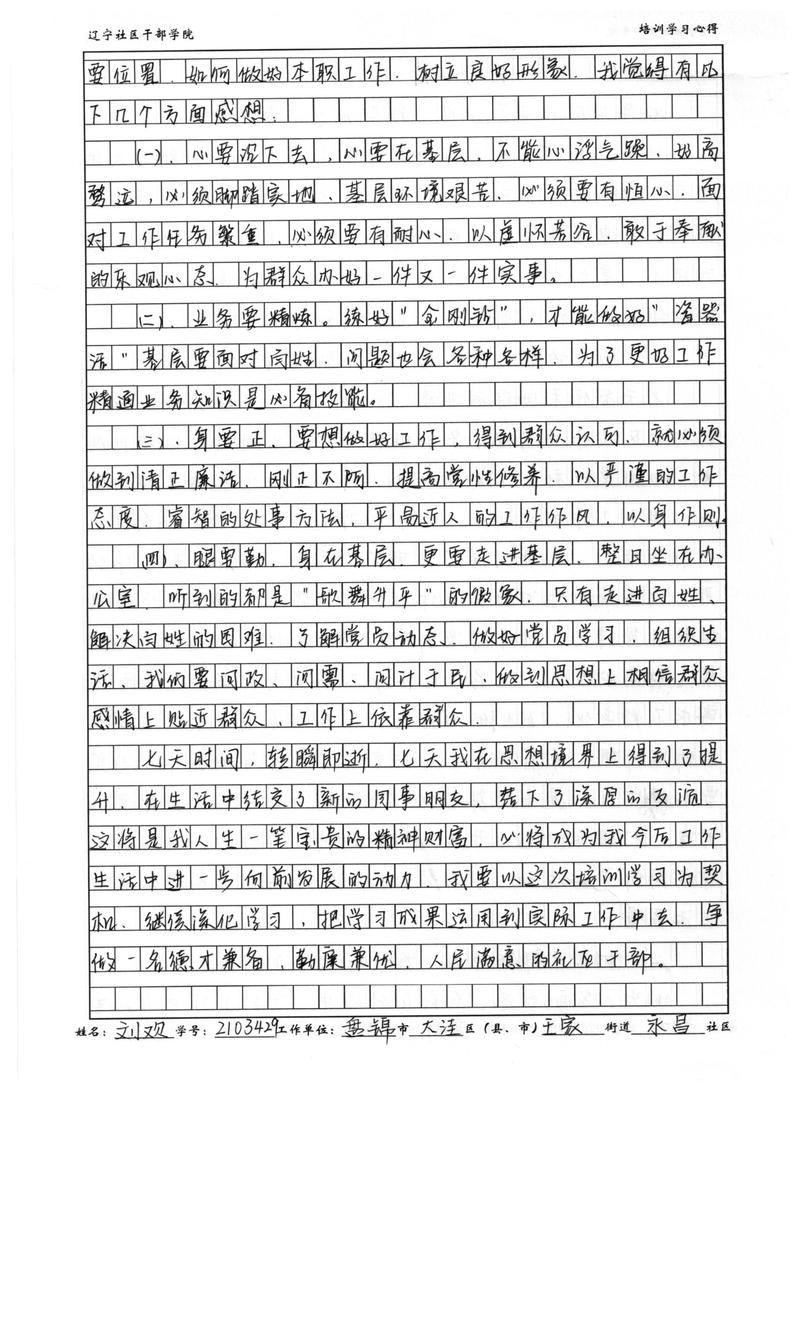 辽宁社区干部学院 培训学习心得
要位置、如何做好本职工作、树立良好形象、我觉得有以
下几个方面感想:
(一)、心要沉下去,心要在基层,不能心浮气躁、好高
骛远,必须脚踏实地、基层环境艰苦、必须要有恒心、面
对工作任务繁重、必须要有耐心、以虚怀若谷、敢于奉献
的乐观心态、为群众办好一件又一件实事。
(二)、业务要精炼。练好"金刚钻",才能做好"瓷器
活"基层要面对百姓、问题也会各种各样、为了更好工作
精通业务知识是必备技能。
(三)、身要正、要想做好工作,得到群众认可、就必须
做到清正廉洁、刚正不阿、提高党性修养、以严谨的工作
态度、睿智的处事方法,平易近人的工作作风、以身作则。
(四)、腿要勤、身在基层、更要走进基层、整日坐在办
公室、听到的都是"歌舞升平"的假象、只有走进百姓、
解决百姓的困难、了解党员动态、做好党员学习、组织生
活、我们要问政、问需、问计于民、做到思想上相信群众
感情上贴近群众、工作上依靠群众.
七天时间,转瞬即逝、七天我在思想境界上得到了提
升、在生活中结交了新的同事朋友,结下了深厚的友谊.
这将是我人生一笔宝贵的精神财富、必将成为我今后工作
生活中进一步向前发展的动力、我要以这次培训学习为契
机、继续深化学习,把学习成果运用到实际工作中去、争
做一名德才兼备,勤廉兼优、人民满意的社区干部。
姓名:刘欢 学号:2103429 工作单位:盘锦市 大洼 区(县、市)王家 街道 永昌 社区